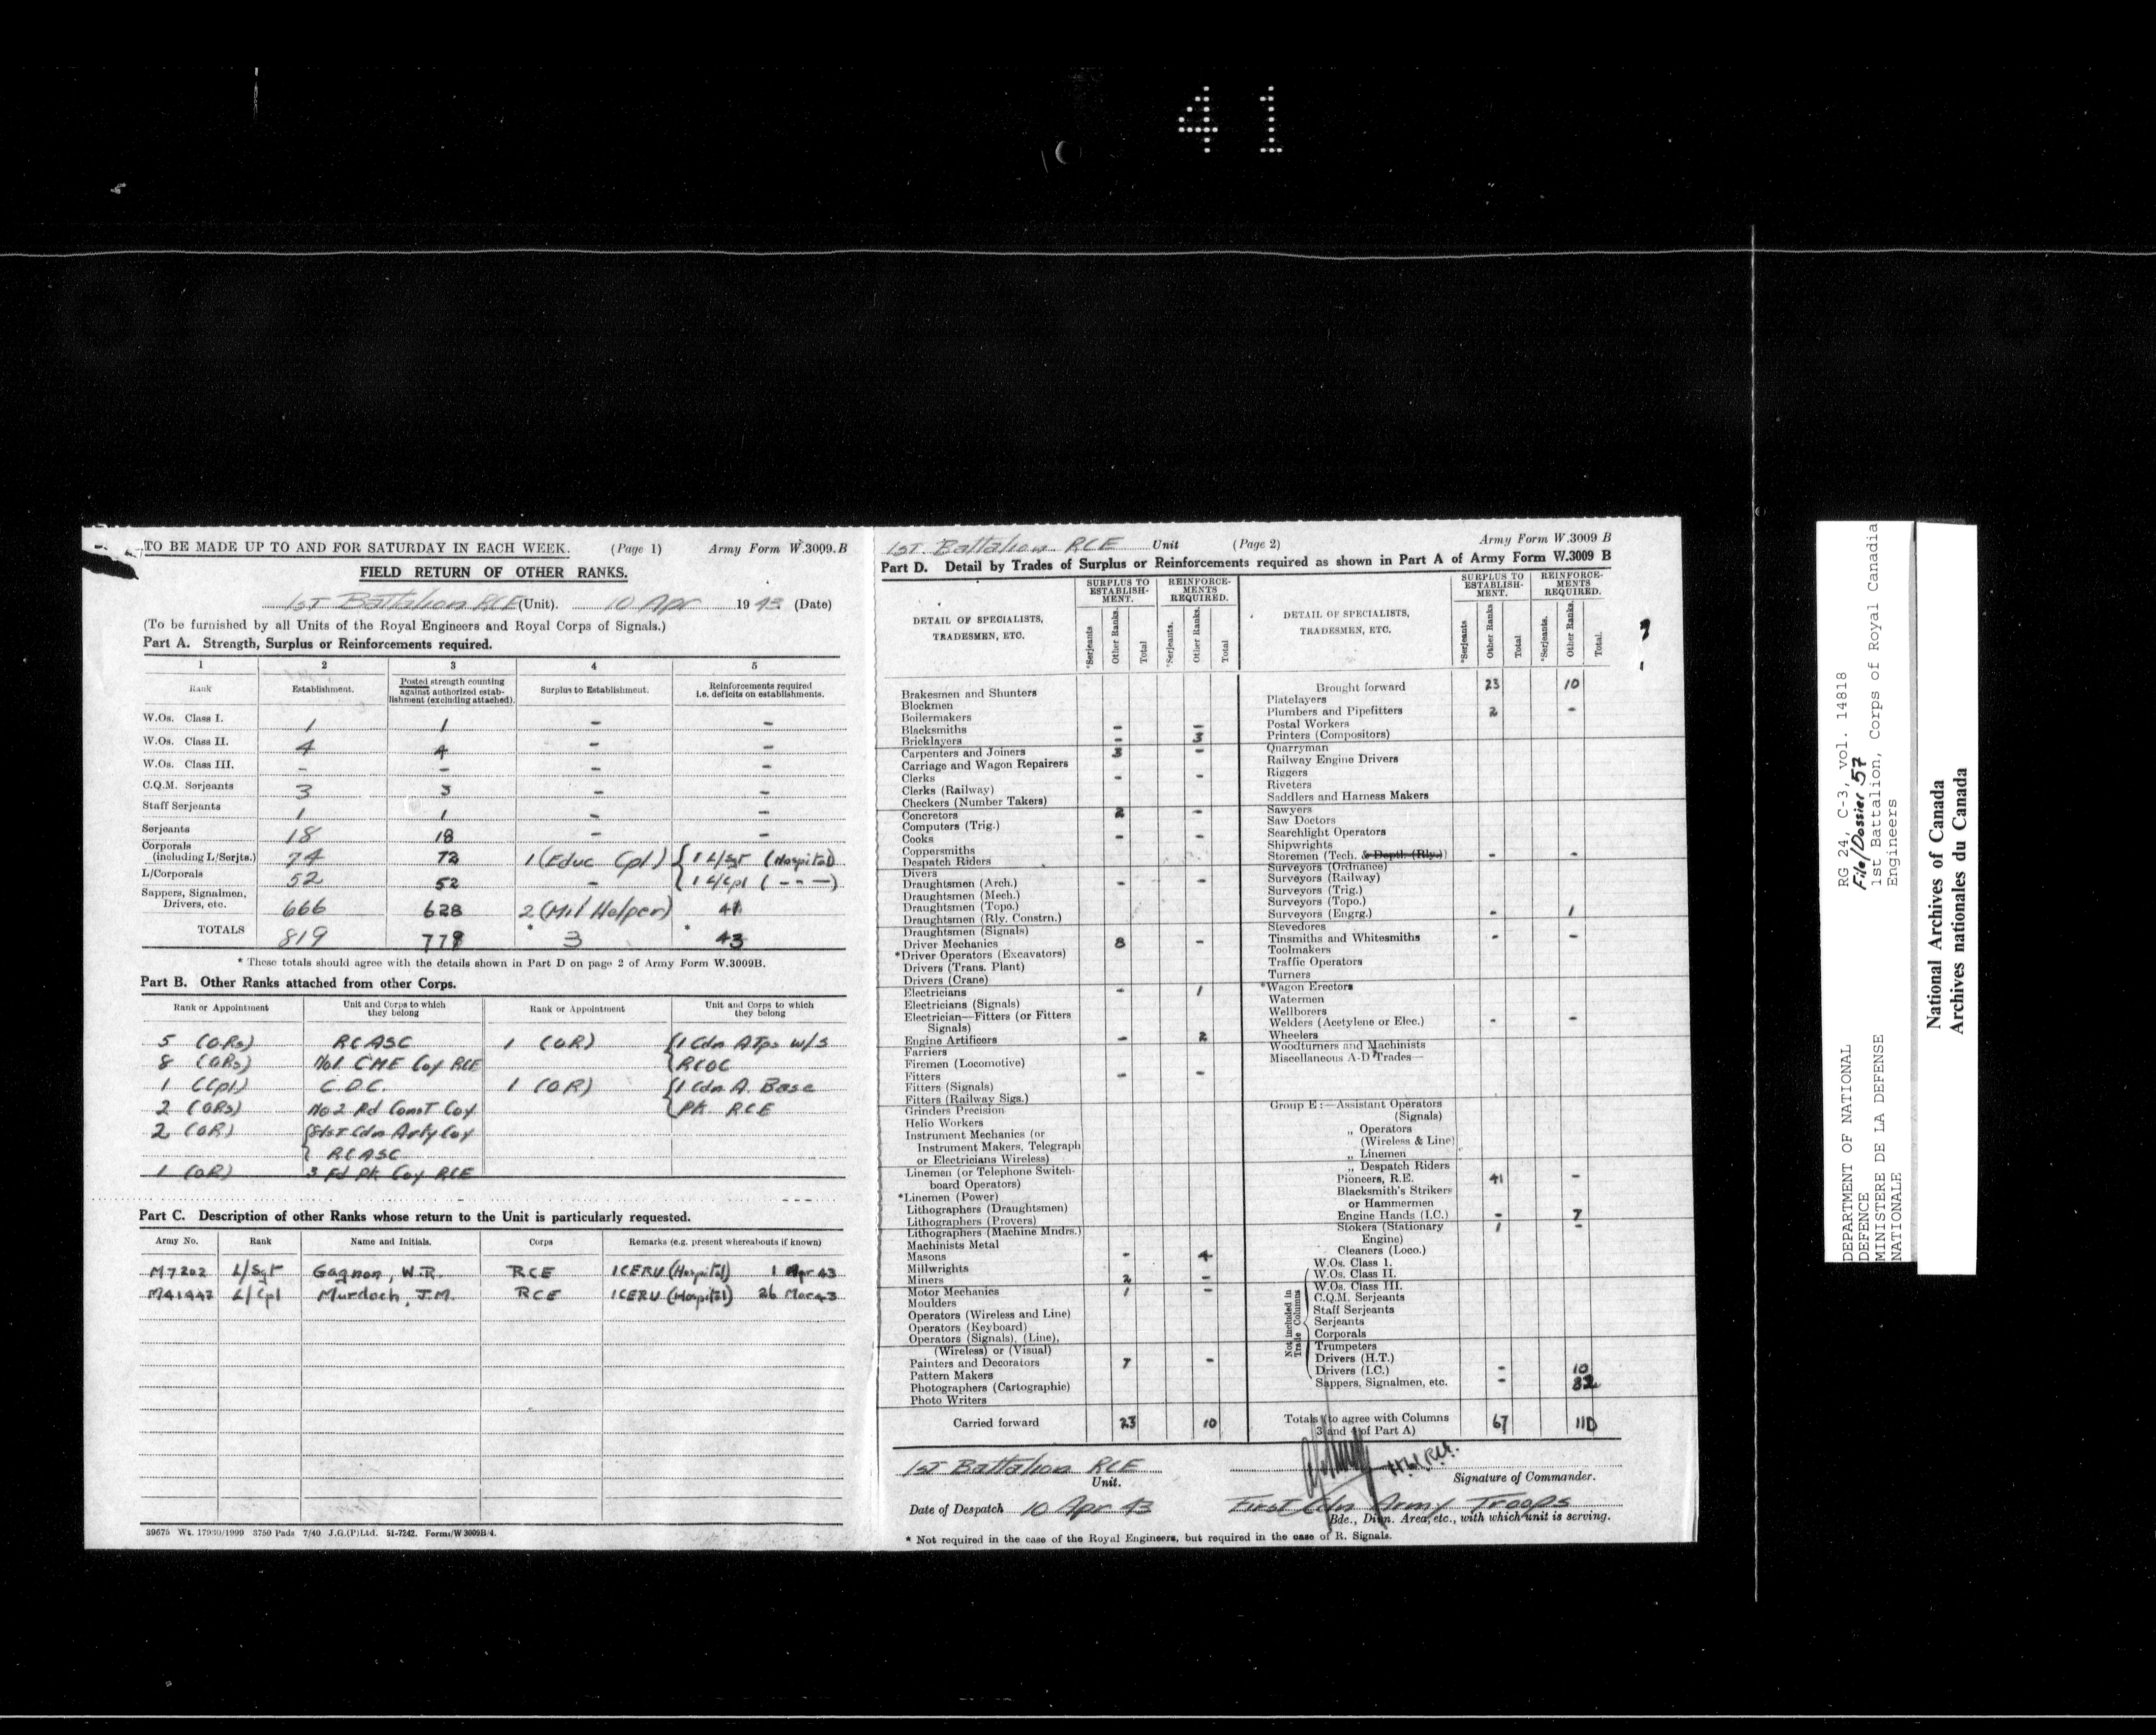 41
TO BE MADE UP TO AND FOR SATURDAY IN EACH WEEK. (Page 1) Army Form W.3009.B
FIELD RETURN OF OTHER RANKS.
1st Battalion RCE (Unit). 10 Apr 1943 (Date)
(To be furnished by all Units of the Royal Engineers and Royal Corps of Signals.)
Part A. Strength, Surplus or Reinforcements required.
1 2 3 4 5
Rank Establishment. Posted strength counting against authorized establishment (excluding attached). Surplus to Establishment. Reinforcements required i.e. deficits on establishments.
W.Os. Class I. 1 1 - -
W.Os. Class II. 4 4 - -
W.Os. Class III. - - - -
C.Q.M. Serjeants 3 3 - -
Staff Serjeants 1 1 - -
Serjeants 18 18 - -
Corporals (including L/Serjts.) 74 72 1 (Educ Cpl) 1 L/Sgt (Hospital)
L/Corporals 52 52 - 1 L/Cpl ( - - - )
Sappers, Signalmen, Drivers, etc. 666 628 2 (Mil Helper) 41
TOTALS 819 779 * 3 * 43
* These totals should agree with the details shown in Part D on page 2 of Army Form W.3009B.
Part B. Other Ranks attached from other Corps.
Rank or Appointment Unit and Corps to which they belong Rank or Appointment Unit and Corps to which they belong
5 (ORs) RCASC 1 (OR) 1 Cdn ATps w/s
8 (ORs) No1 CME Coy RCE RCOC
1 (Cpl) C.D.C. 1 (OR) 1 Cdn A. Base
2 (ORs) No 2 Rd Const Coy PK RCE
2 (OR) 81st Cdn Arty Coy
RCASC
1 (OR) 3 Fd PK Coy RCE
Part C. Description of other Ranks whose return to the Unit is particularly requested.
Army No. Rank Name and Initials. Corps Remarks (e.g. present whereabouts if known)
M7202 L/Sgt Gagnon, W.R. RCE ICERU (Hospital) 1 Apr 43
M41447 L/Cpl Murdoch, J.M. RCE ICERU (Hospital) 26 Mar 43
39675 Wt. 17930/1999 3750 Pads 7/40 J.G.(P)Ltd. 51-7242. Forms/W 3009B/4.
1st Battalion RCE Unit (Page 2) Army Form W.3009 B
Part D. Detail by Trades of Surplus or Reinforcements required as shown in Part A of Army Form W.3009 B
DETAIL OF SPECIALISTS, TRADESMEN, ETC. SURPLUS TO ESTABLISHMENT. REINFORCEMENTS REQUIRED.
*Serjeants Other Ranks. Total *Serjeants. Other Ranks. Total
Brakesmen and Shunters
Blockmen
Boilermakers
Blacksmiths - -
Bricklayers - 3
Carpenters and Joiners 3 -
Carriage and Wagon Repairers
Clerks - -
Clerks (Railway)
Checkers (Number Takers)
Concretors 2 -
Computers (Trig.)
Cooks - -
Coppersmiths
Despatch Riders
Divers
Draughtsmen (Arch.) - -
Draughtsmen (Mech.)
Draughtsmen (Topo.)
Draughtsmen (Rly. Constrn.)
Draughtsmen (Signals)
Driver Mechanics 8 -
*Driver Operators (Excavators)
Drivers (Trans. Plant)
Drivers (Crane)
Electricians - 1
Electricians (Signals)
Electrician—Fitters (or Fitters Signals)
Engine Artificers - 2
Farriers
Firemen (Locomotive)
Fitters - -
Fitters (Signals)
Fitters (Railway Sigs.)
Grinders Precision
Helio Workers
Instrument Mechanics (or
Instrument Makers, Telegraph
or Electricians Wireless)
Linemen (or Telephone Switch-
board Operators)
*Linemen (Power)
Lithographers (Draughtsmen)
Lithographers (Provers)
Lithographers (Machine Mndrs.)
Machinists Metal
Masons - 4
Millwrights
Miners 2 -
Motor Mechanics 1 -
Moulders
Operators (Wireless and Line)
Operators (Keyboard)
Operators (Signals), (Line),
(Wireless) or (Visual)
Painters and Decorators 7 -
Pattern Makers
Photographers (Cartographic)
Photo Writers
Carried forward 23 10
DETAIL OF SPECIALISTS, TRADESMEN, ETC. SURPLUS TO ESTABLISHMENT. REINFORCEMENTS REQUIRED.
*Serjeants Other Ranks Total *Serjeants. Other Ranks. Total.
Brought forward 23 10
Platelayers
Plumbers and Pipefitters 2 -
Postal Workers
Printers (Compositors)
Quarryman
Railway Engine Drivers
Riggers
Riveters
Saddlers and Harness Makers
Sawyers
Saw Doctors
Searchlight Operators
Shipwrights
Storemen (Tech. & Depth (Rly.)) - -
Surveyors (Ordnance)
Surveyors (Railway)
Surveyors (Trig.)
Surveyors (Topo.)
Surveyors (Engrg.) - 1
Stevedores
Tinsmiths and Whitesmiths - -
Toolmakers
Traffic Operators
Turners
*Wagon Erectors
Watermen
Wellborers
Welders (Acetylene or Elec.) - -
Wheelers
Woodturners and Machinists
Miscellaneous A-D Trades—
Group E:—Assistant Operators
(Signals)
,, Operators
(Wireless & Line)
,, Linemen
,, Despatch Riders
Pioneers, R.E. 41 -
Blacksmith's Strikers
or Hammermen
Engine Hands (I.C.) - 7
Stokers (Stationary Engine) 1 -
Cleaners (Loco.)
Not included in Trade Columns
W.Os. Class 1.
W.Os. Class II.
W.Os. Class III.
C.Q.M. Serjeants
Staff Serjeants
Serjeants
Corporals
Trumpeters
Drivers (H.T.)
Drivers (I.C.) - 10
Sappers, Signalmen, etc. - 82
Totals (to agree with Columns 3 and 4 of Part A) 67 110
1st Battalion RCE
Unit.
Signature of Commander.
Date of Despatch 10 Apr 43 First Cdn Army Troops
Bde., Divn. Area, etc., with which unit is serving.
* Not required in the case of the Royal Engineers, but required in the case of R. Signals.
DEPARTMENT OF NATIONAL DEFENCE
MINISTERE DE LA DEFENSE NATIONALE
RG 24, C-3, vol. 14818
File/Dossier 57
1st Battalion, Corps of Royal Canadia
Engineers
National Archives of Canada
Archives nationales du Canada